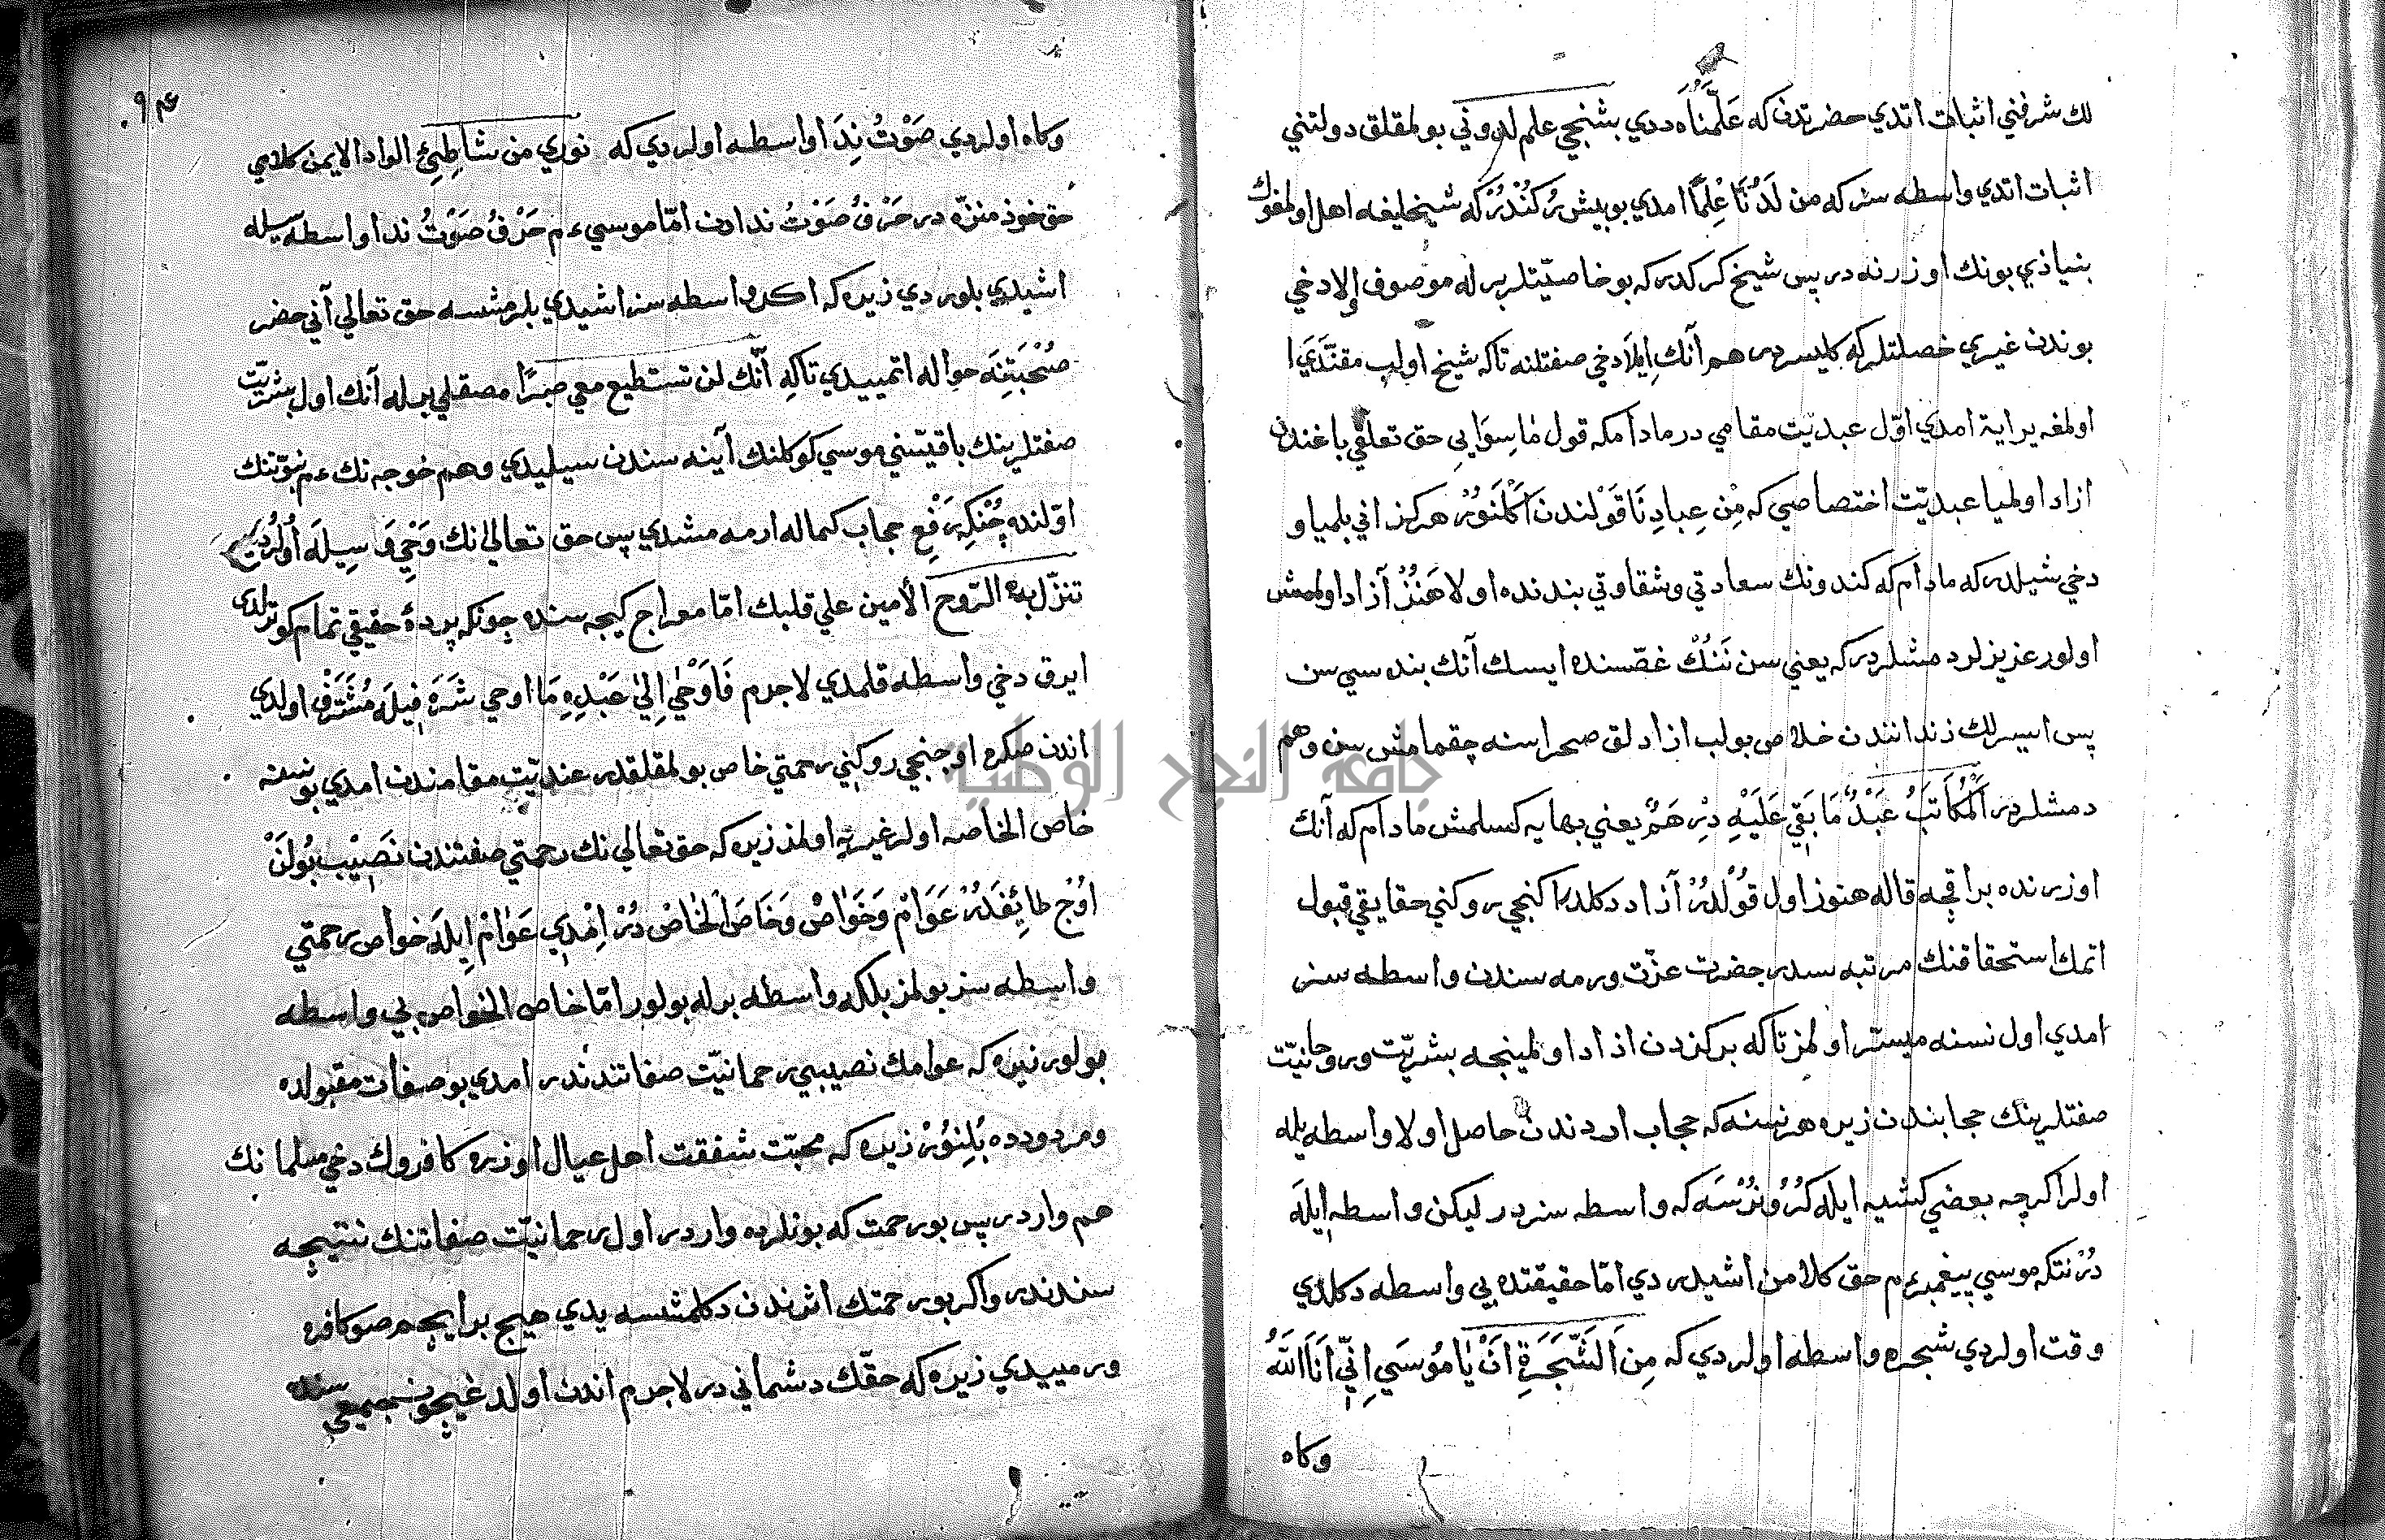 لك شرفني اثبات اتدي حضرتدن كه عَلَّمْنَاه ددي بشنجي علم لدوني بولمقلق دولتني
اثبات اتدي واسطه سز كه من لَدُنَّا عِلْمًا امدي بو بيش رُكُنْدُرْ كه شيخليغه اهل اولمغوك
بنياذي بونك اوزرنه در پس شيخ كركدر كه بو خاصيّتلر برله موصوف اولا دخي
بوندن غيري خصلتلر كه كليسردر هم آنك ايلا دخي صفتلنه تاكه شيخ اولب مقتدَي ا
اولمغه يراية امدي اوّل عبديّت مقامي در مادامكه قول مَا سِوَايِ حق تعلّقي باغندن
ازاد اولميا عبديّت اختصاصي كه مِن عِبادِنَا قَوْلندن اكْلَنَوُرْ هركز اني بلميا و
دخي شيلدر كه مادام كه كندونك سعادتي وشقاوتي بندنده اولا هَنُزُ آزاد اولمش
اولور عزيزلر دمشلردر كه يعني سن نَنُكْ غصّسنده ايسك آنك بنده سي سن
پس اسيرلك زندانندن خلاص بولب ازادلق صحراسنه چقمامش سن وهم
دمشلردر اَلْمُكَاتَبُ عَبْدٌ مَا بَقِيَ عَلَيْهِ دِرْهَمٌ يعني بهايه كسلمش مادام كه آنك
اوزرنده بر اقچه قاله هنوز اول قوُلدُرْ آزاد دكلدر اكنجي روكني حقايقي قبول
اتمك استحقاقنك مرتبه سدر حضرت عزّت ورمه سندن واسطه سز
امدي اول نسنه ميسّر اولمز تاكه بركزدن ازاد اولمينجه بشريّت وروحانيّت
صفتلرينك حجابندن زيره هر نسنه كه حجاب اردندن حاصل اولا واسطه يله
اولر اكرچه بعضي كشيه ايله كُرُونُرْسَه كه واسطه سزدر ليكن واسطه ايلَه
دُرْ نتكه موسي پيغمبر ءم حق كلامن اشيدر دي امّا حقيقتده بي واسطه دكلدي
وقت اولردي شجره واسطه اولردي كه مِنَ الشَّجَرَةِ اَنْ يَا مُوسَي اِنّي اَنَا اللهُ
وكاه
٩٤
وكاه اولردي صَوْتُ نِدَا واسطه اولردي كه نودي من شاطئ الواد الايمن كلامي
حق خوذ منزّه در حَرْفُ صَوْتُ ندادن امّا موسي ءم حَرْفُ صَوْتُ ندا واسطه سيله
اشيدي بلوردي زيره كه اكر واسطه سز اشيدي بلرمشسه حق تعالي آني حضر
صُحْبَتِنَه حواله اتمييدي تاكه اَنّك لن تستطيع معي صبرًا مصقلي برله آنك اول بشريّت
صفتلرينك باقيتسني موسي كوكلنك آينه سندن سيليدي وهم خوجه نك ءم نبوّتنك
اوّلنده چُنْكِه رَفْعِ حجاب كماله ارمه مشدي پس حق تعالي نك وَحْي وَسِيلَه اُولُردي
تنزّل به الرّوح الأمين علي قلبك امّا معراج كيجه سنده چونكه پردۀ حقيقي تمام كوترلدي
ايرق دخي واسطه قلمدي لاجرم فَاَوْحَي اِلي عَبْدِهِ مَا اوحي شَرَفيلَه مُشَرَّفْ اولدي
اندن صكره اوچنجي روكني رحمتي خاص بولمقلقدر عنديّت مقامندن امدي بو نسنه
خاص الخاصه اولر غيريه اولمز زيره كه حق تعالي نك رحمتي صفتندن نَصِيْب بُولَنْ
اوُچ طائِفَدُرْ عَوَامْ وَخَوَاصْ وَخَاصَ الْخَاصْ دُرْ اِمْدِي عَوَامْ ايلَه خواص رحمتي
واسطه سز بولمز بلكه واسطه برله بولور امّا خاص الخواص بي واسطه
بولور زيره كه عوامك نصيبي رحمانيّت صفاتندندر امدي بو صفات مقبولده
ومردودده بُلِنوُرْ زيره كه محبّت شفقت اهل عيال اوزره كافروك دخي مسلمانك
هم واردر پس بو رحمت كه بونلرده واردر اول رحمانيّت صفاتنك نتيجه
سندندر واكر بو رحمتك اثرندن دكلمشسه يدي هيچ بر ايچم صو كافره
ورمييدي زيره كه حقّك دشماني در لاجرم اندن اولدغيچون جميعي سنده